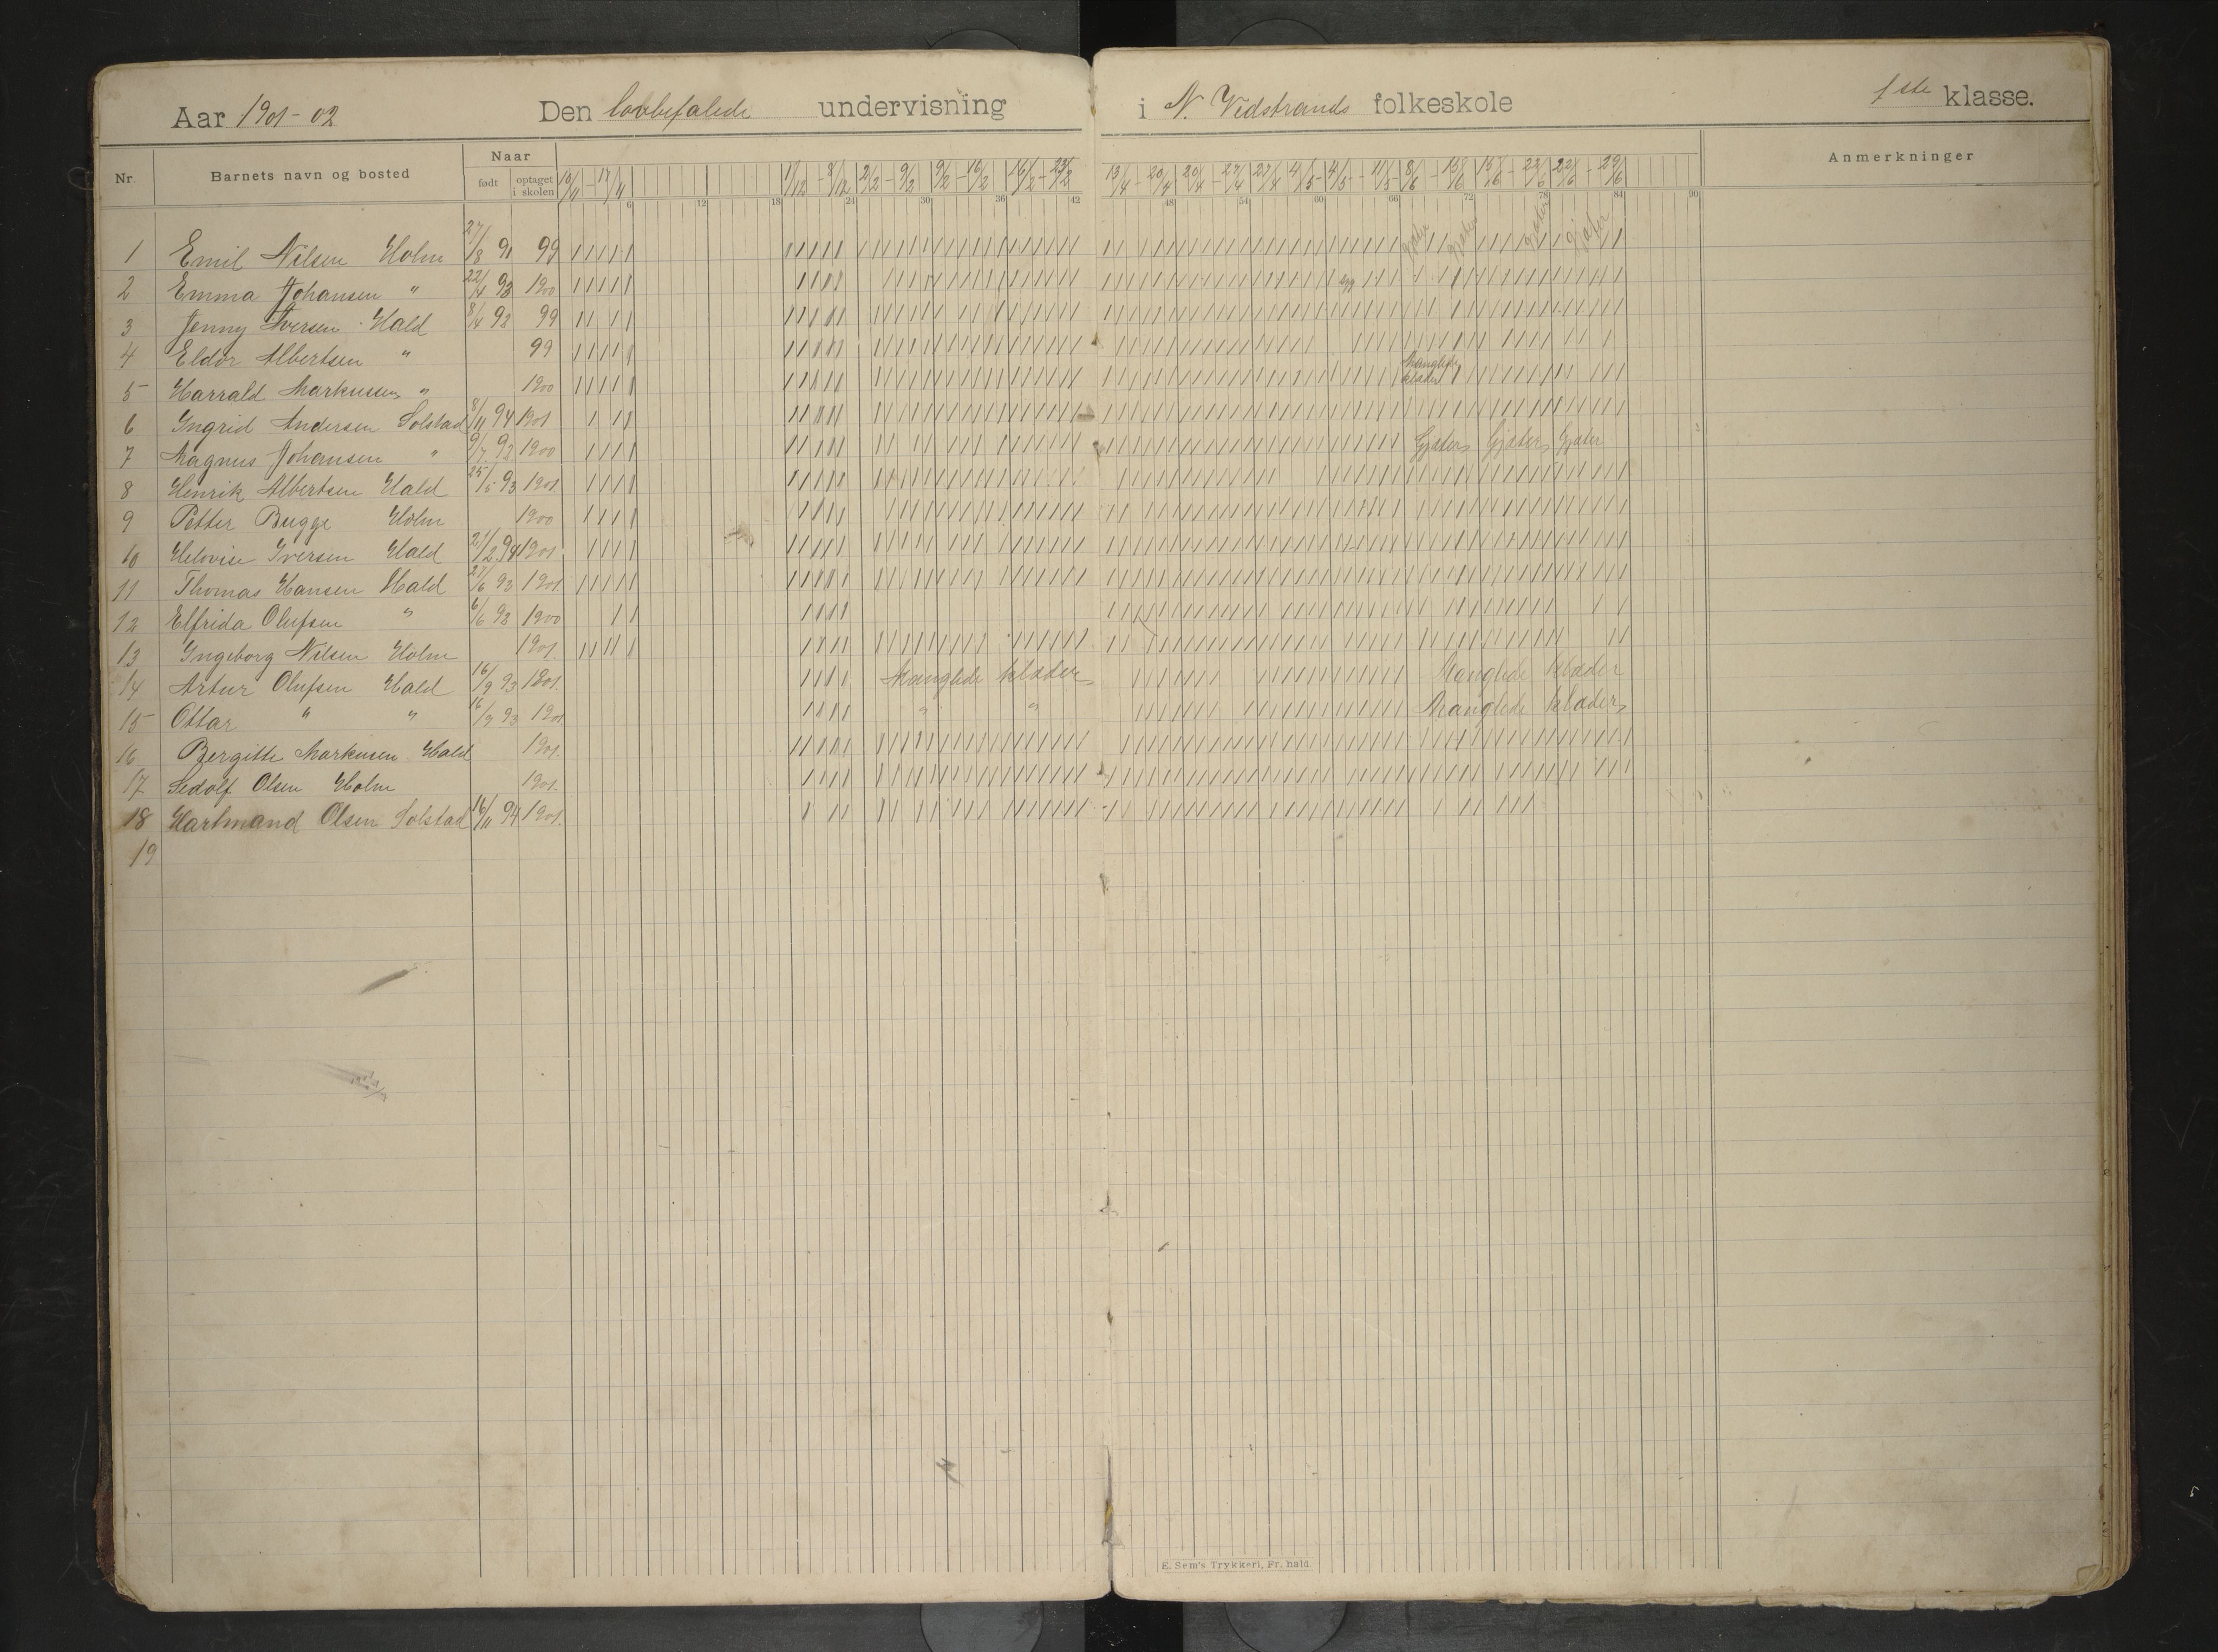 Aar 1901-02 Den lovbefalede undervisning i N. Vedstrands folkeskole 1ste klasse.
Nr. Barnets navn og bosted Naar født optaget i skolen Anmerkninger
10/11 - 17/11 1/12 - 8/12 2/2 - 9/2 9/2 - 16/2 16/2 - 23/2 13/4 - 20/4 20/4 - 27/4 27/4 4/5 - 4/5 - 11/5 - 8/6 - 15/6 15/6 - 22/6 22/6 - 29/6
6 12 18 24 30 36 42 48 54 60 66 72 78 84 90
1 Emil Nilsen Holm 27/8 91 99 gjæter gjæter gjæter gjæter
2 Emma Johansen " 22/4 93 1900 syg
3 Jenny Iversen Hald 8/4 93 99
4 Eldor Albertsen " 99
5 Harrald Markussen " 1900 Manglede klæder
6 Ingrid Andersen Solstad 8/11 94 1901
7 Magnus Johansen " 9/7 92 1900 Gjæter Gjæter Gjæter
8 Henrik Albertsen Hald 25/5 93 1901.
9 Petter Bugge Holm 1900
10 Helovise Iversen Hald 21/2 94 1901.
11 Thomas Hansen Hald 27/6 93 1901.
12 Elfrida Olufsen " 6/6 93 1900
13 Ingeborg Nilsen Holm 1901.
14 Artur Olufsen Hald 16/9 93 1801. Manglede klæder Manglede klæder
15 Ottar " " 16/9 93 1901 " " Manglede klæder
16 Bergitte Markusen Hald 1901.
17 Sedolf Olsen Holm 1901.
18 Hartmand Olsen Solstad 16/11 94 1901.
19
E. Sem's Trykkeri, Fr. hald.